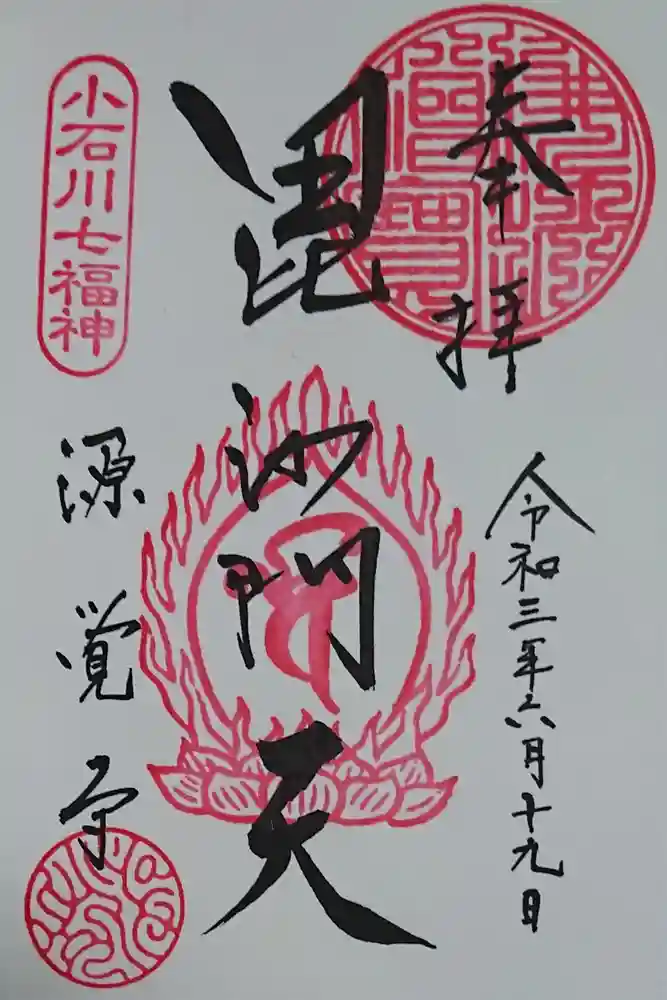 奉拝
令和三年六月十九日
毘沙門天
小石川七福神
源覚寺